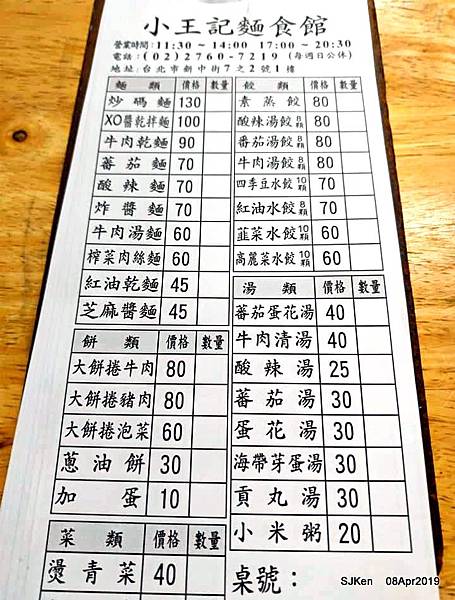 小王記麵食館
營業時間：11:30 ~ 14:00 17:00 ~ 20:30
電話：(02)2760-7219 (每週日公休)
地址：台北市新中街7之2號1樓
麵類 價格 數量
炒碼麵 130
XO醬乾拌麵 100
牛肉乾麵 90
蕃茄麵 70
酸辣麵 70
炸醬麵 70
牛肉湯麵 60
榨菜肉絲麵 60
紅油乾麵 45
芝麻醬麵 45
餅類 價格 數量
大餅捲牛肉 80
大餅捲豬肉 80
大餅捲泡菜 60
蔥油餅 30
加蛋 10
菜類 價格 數量
燙青菜 40
餃類 價格 數量
素蒸餃 80
酸辣湯餃8顆 80
番茄湯餃8顆 80
牛肉湯餃8顆 80
四季豆水餃10顆 70
紅油水餃8顆 70
韮菜水餃10顆 60
高麗菜水餃10顆 60
湯類 價格 數量
蕃茄蛋花湯 40
牛肉清湯 40
酸辣湯 25
蕃茄湯 30
蛋花湯 30
海帶芽蛋湯 30
貢丸湯 30
小米粥 20
桌號：
SJKen 08Apr2019